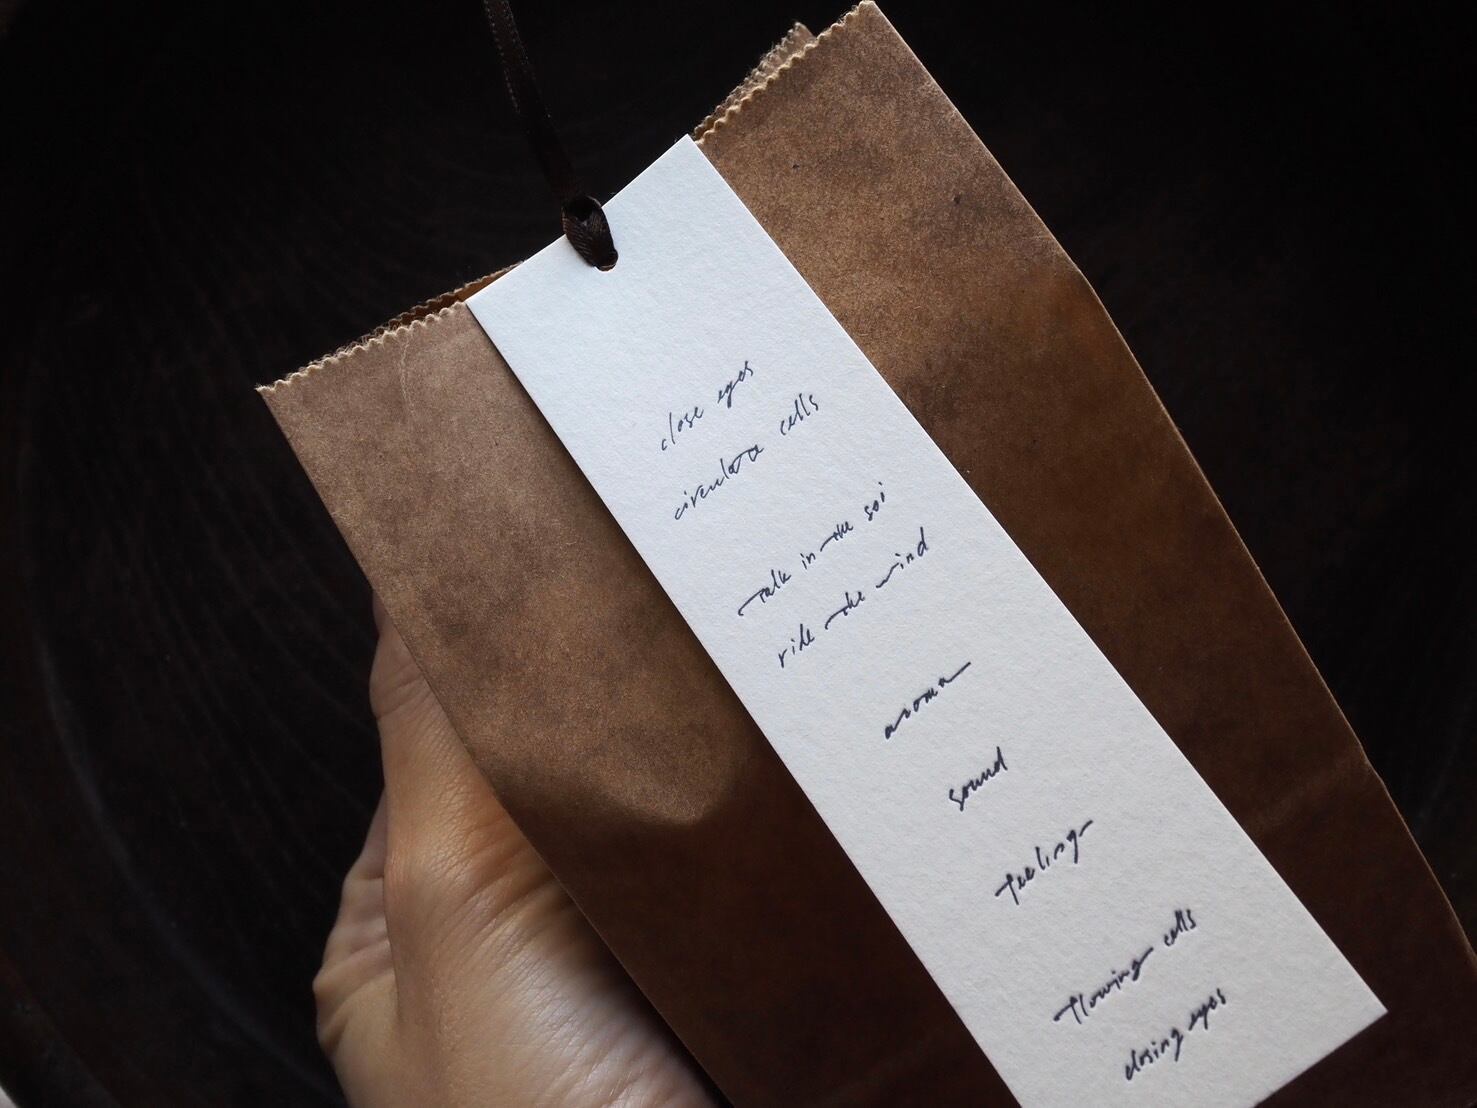 close eyes
circulate cells
talk in the soi
ride the wind
aroma
sound
feeling
flowing cells
closing eyes